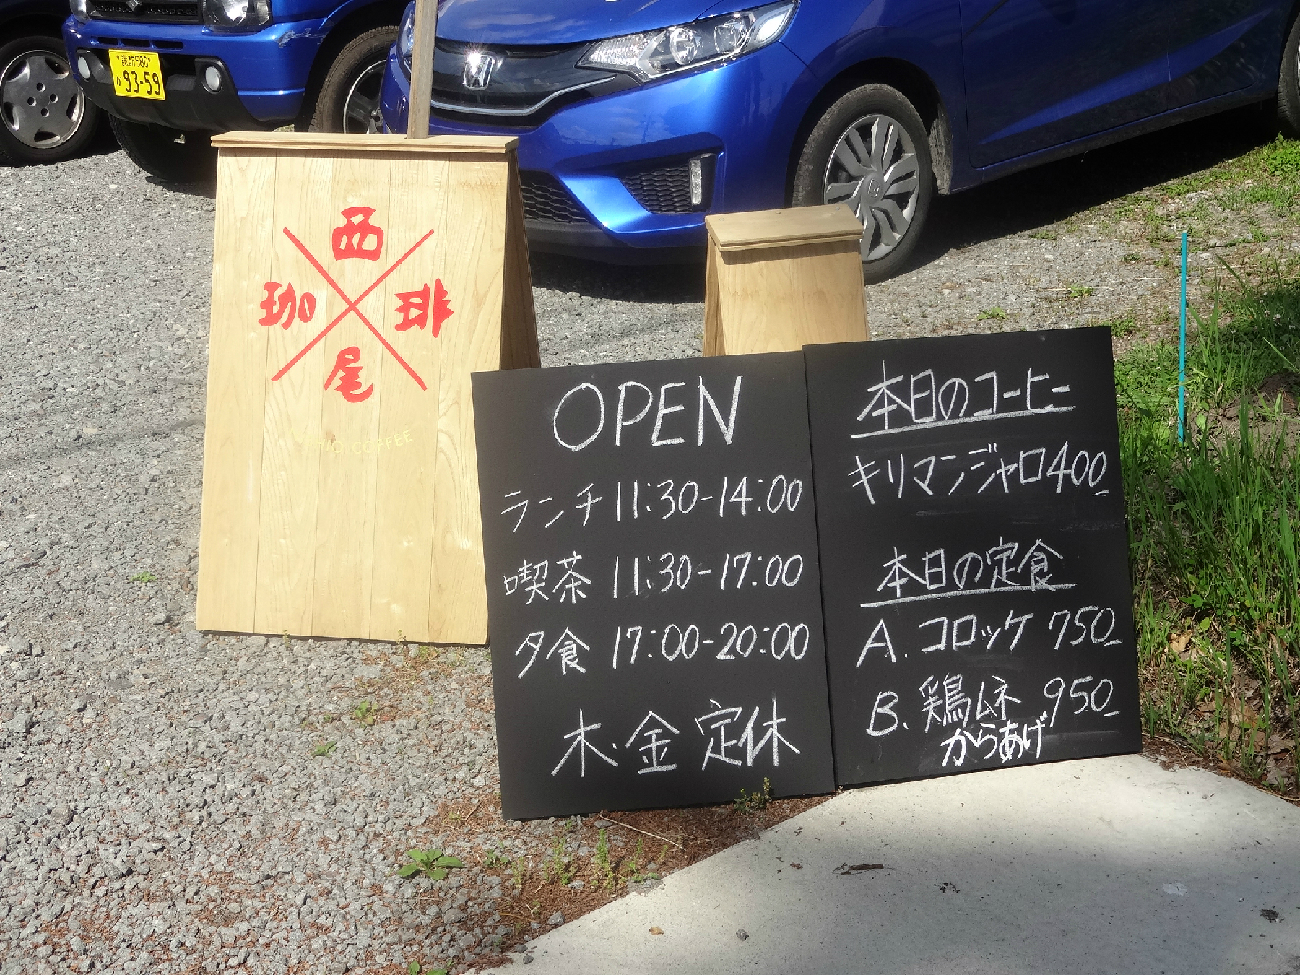 93-59
西
珈 琲
尾
COFFEE
OPEN
ランチ 11:30-14:00
喫茶 11:30-17:00
夕食 17:00-20:00
木・金 定休
本日のコーヒー
キリマンジャロ400
本日の定食
A. コロッケ 750
B. 鶏ムネ 950
からあげ